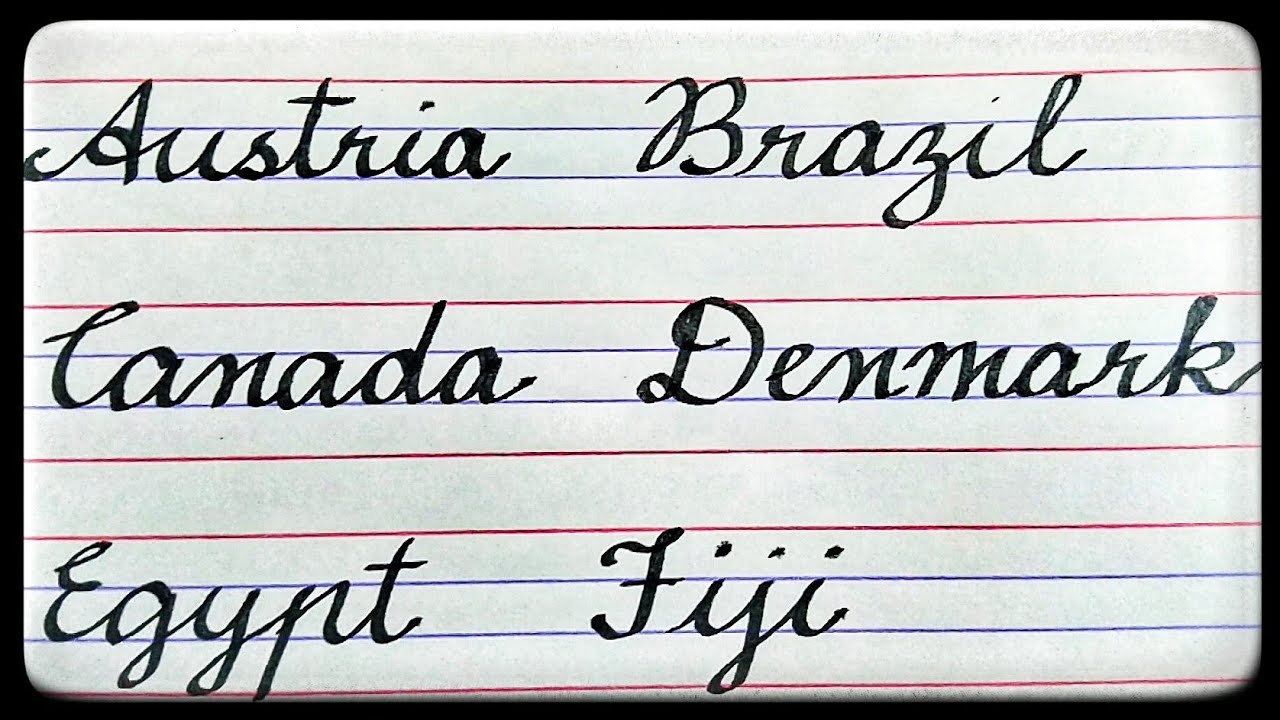 Austria Brazil
Canada Denmark
Egypt Fiji